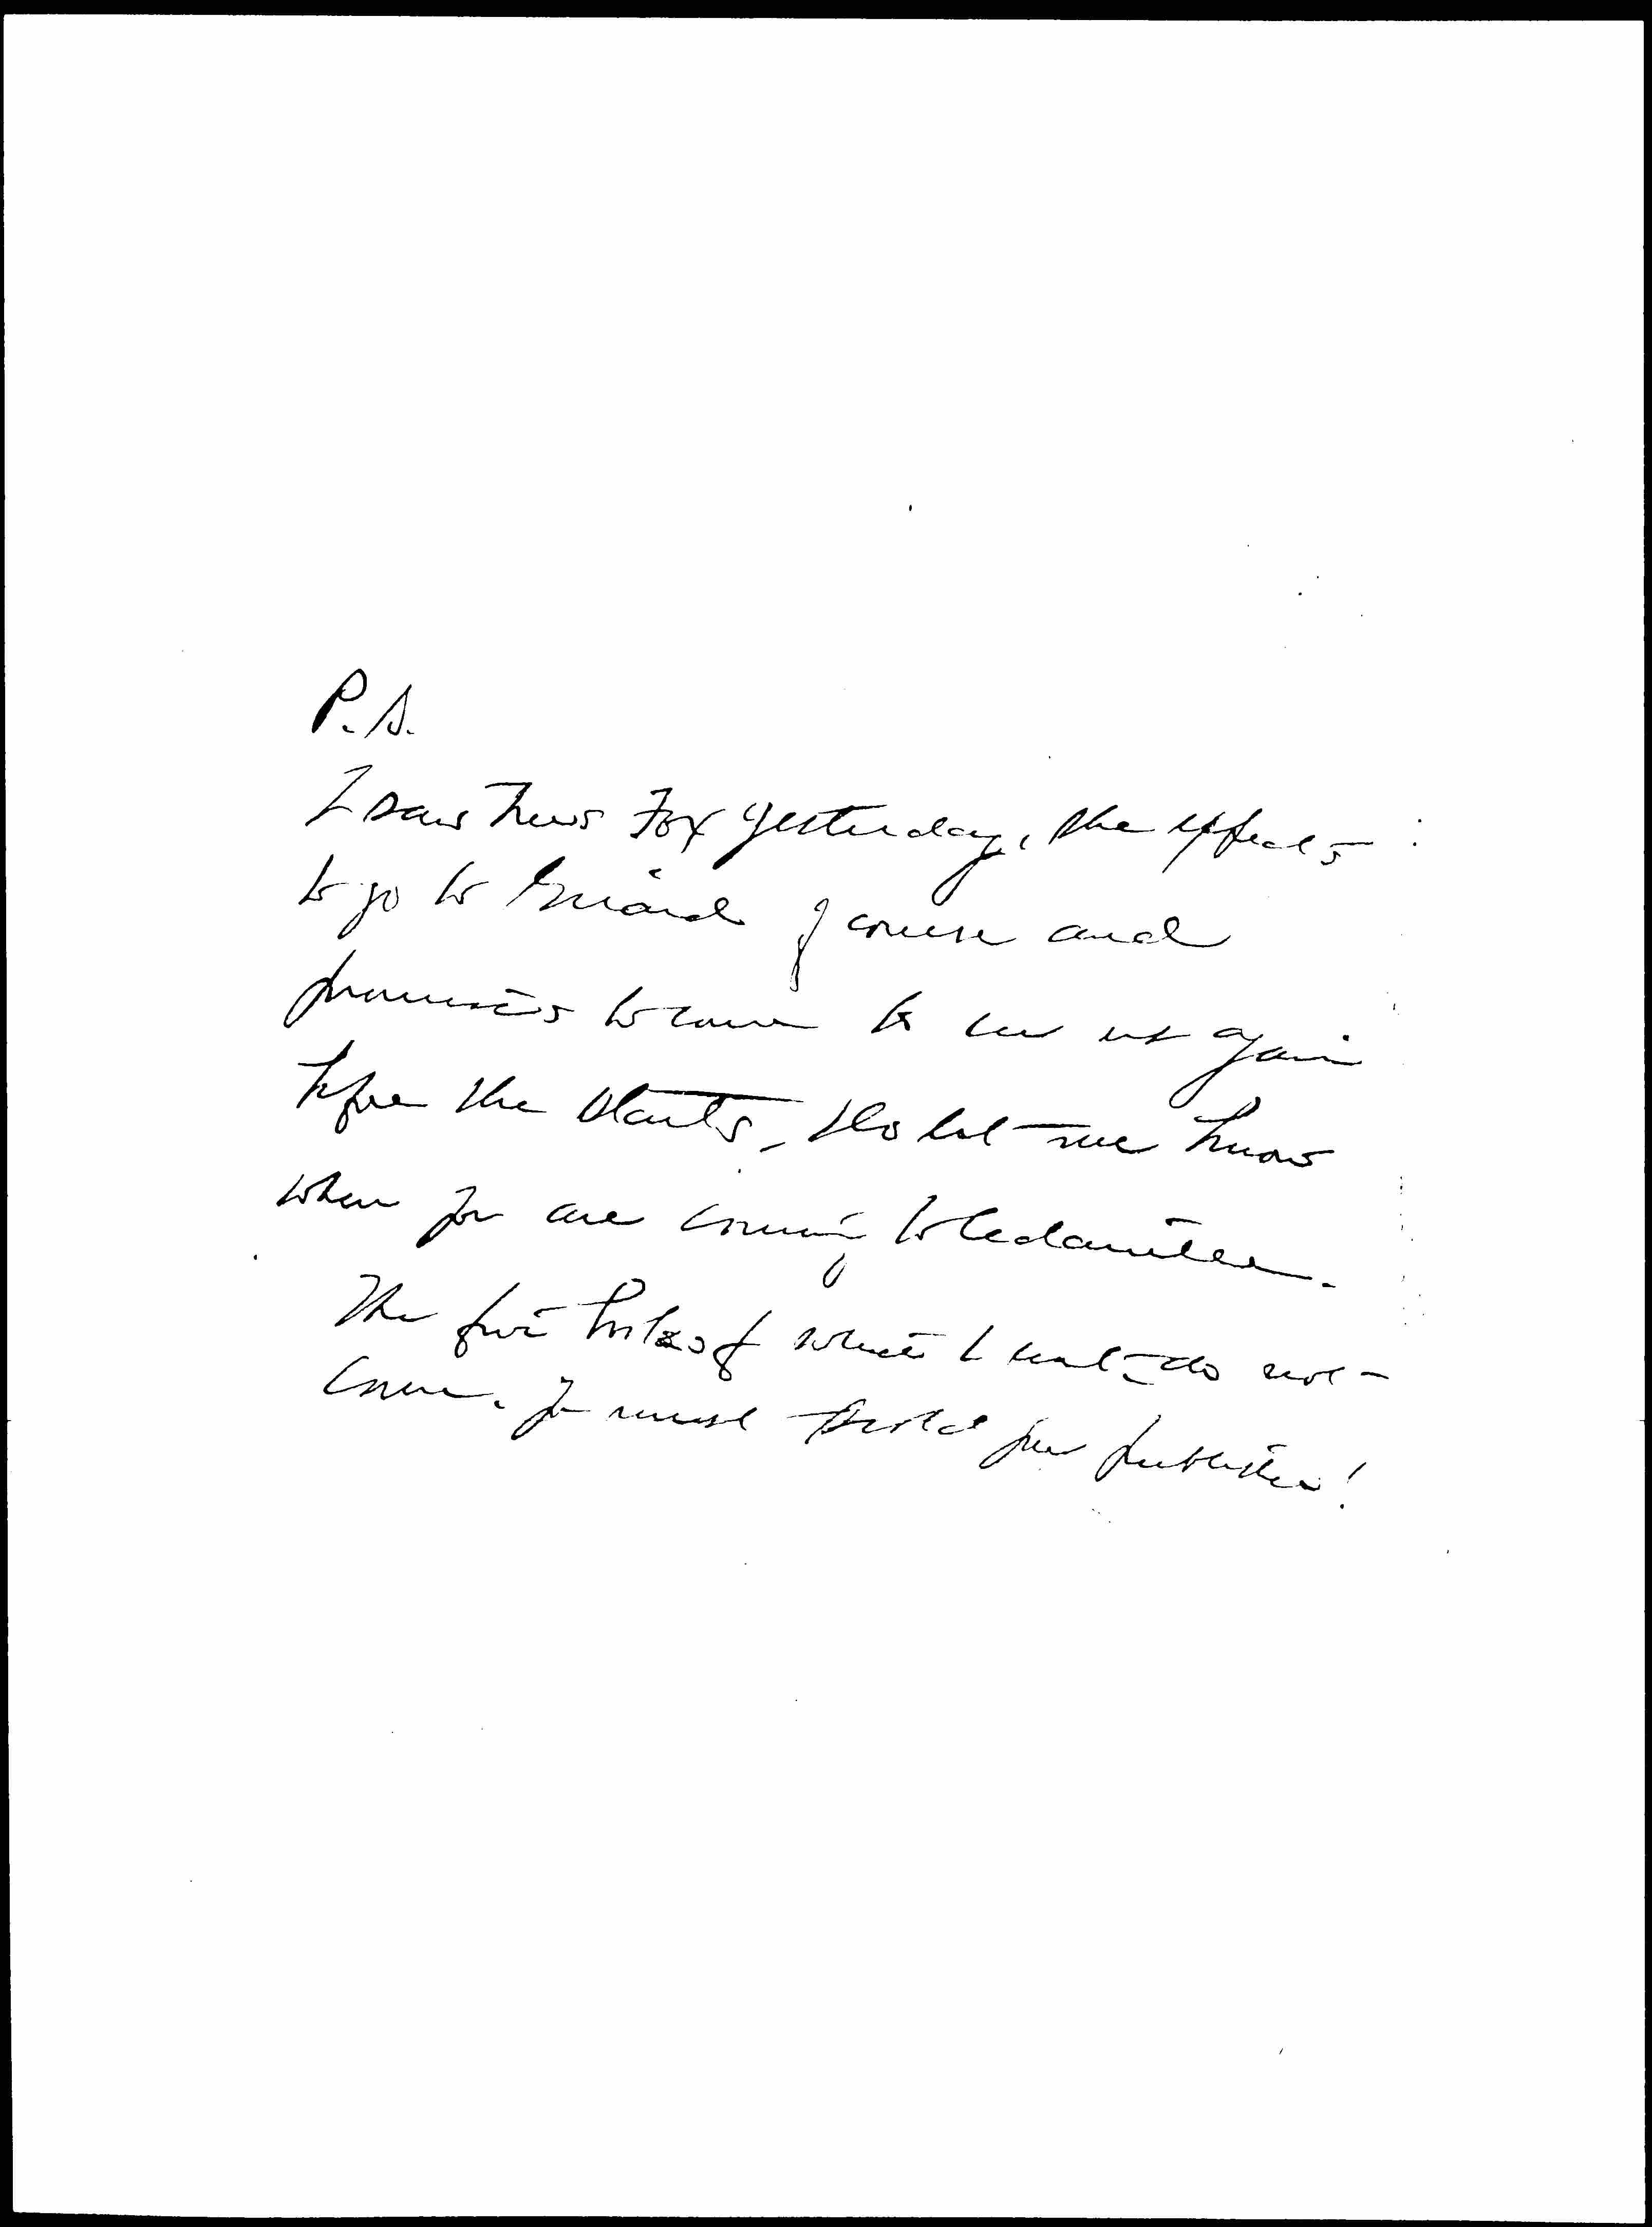 P.S.
I saw Fox yesterday, she expects
to go to of course and
promises to come to see us again
before she starts. Do let me know
when you are coming to
The five books of which I do not
come. You must scold your publisher!